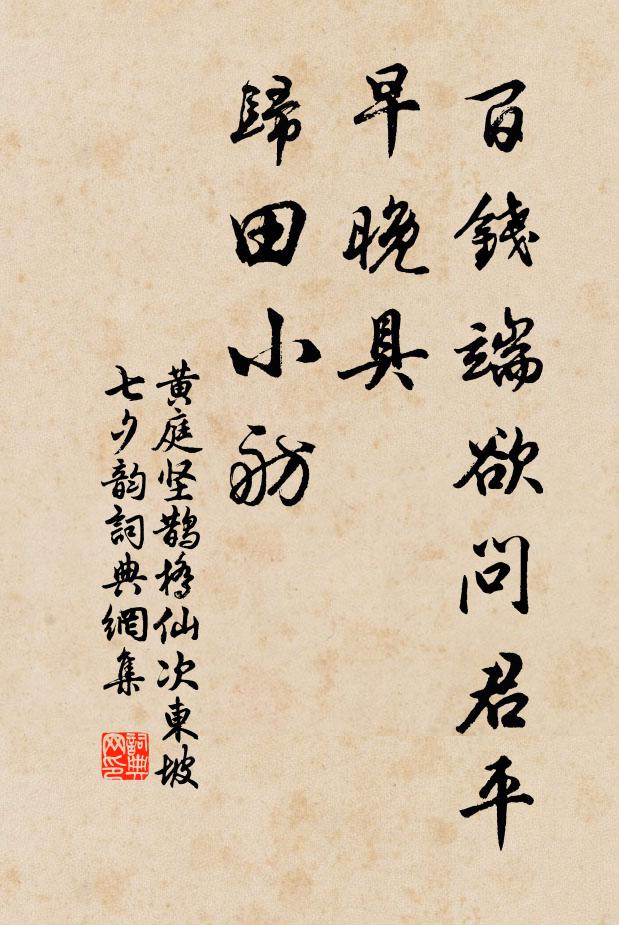 百錢端欲問君平
早晚具
歸田小舫
黄庭坚鵲橋仙次東坡
七夕韵詞典網集
詞典
网印